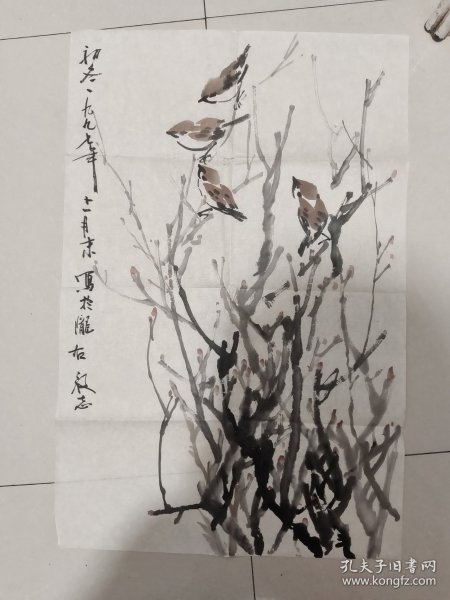 初冬一九九七年十一月末寫於隴右敏志
孔夫子旧书网
www.kongfz.com